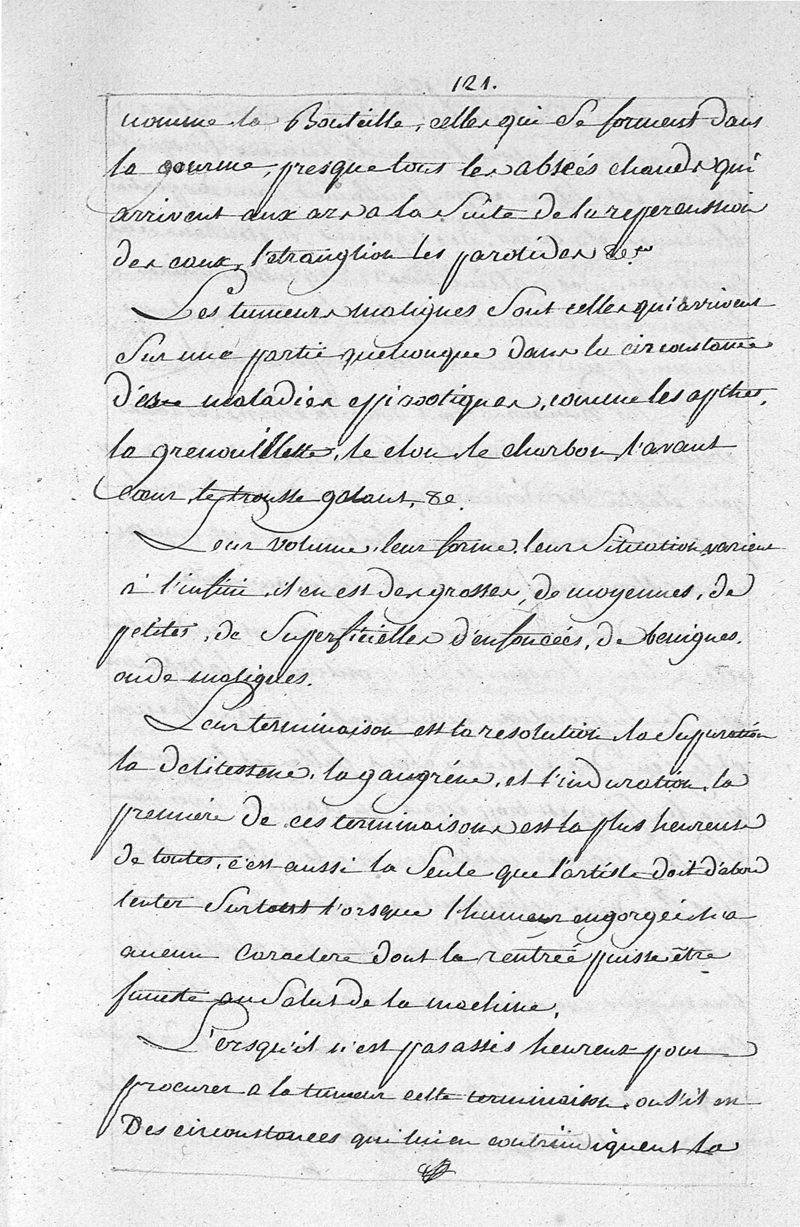 121.
nomme la Bouteille, celles qui se forment dans
la gourme, presque tous les abscés chauds qui
arrivent aux ars a la Suite de la repercussion
des eaux, l'etranglion les parotides &c.
Les tumeurs malignes sont celles qui arrivent
Sur une partie quelconque dans la circonstance
des maladies epizootiques, comme les apthes,
la grenouillette, le clou, le charbon, l'avant
coeur, le trousse galant, &c.
Leur volume, leur forme, leur Situation, varient
à l'infini, il en est de grosses, de moyennes, de
petites, de Superficielles d'enfoncées, de benignes.
ou de malignes.
Leur terminaison est la resolution, la Supuration
la delitessene, la gangréne, et l'induration, la
premiere de ces terminaisons est la plus heureuse
de toutes, c'est aussi la Seule que l'artiste doit d'abord
tenter Surtout l'orsque l'humeur engorgée n'a
aucun caractere dont la rentrée puisse être
funeste au Salut de la machine.
L'orsqu'il n'est pas assés heureux pour
procurer a la tumeur cette terminaison, ou s'il en
Des circonstances qui lui en contrindiquent la